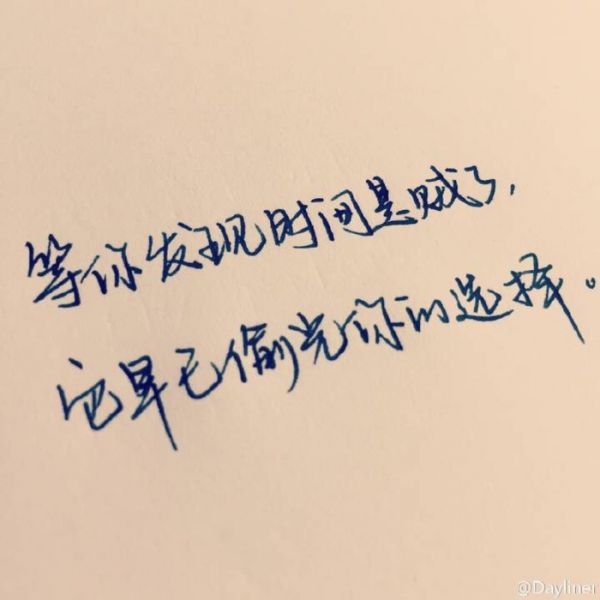 等你发现时间是贼了，
它早已偷光你的选择。
@Dayliner